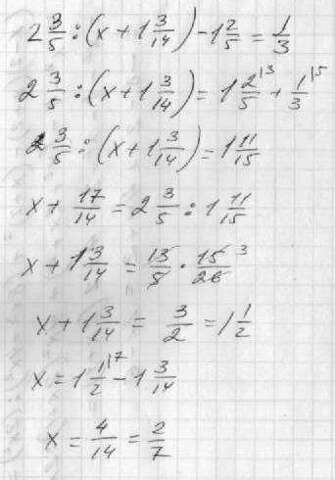 2 3/5 : (x + 1 3/14) - 1 2/5 = 1/3
2 3/5 : (x + 1 3/14) = 1 2/5 ^13 + 1/3 ^15
2 3/5 : (x + 1 3/14) = 1 11/15
x + 17/14 = 2 3/5 : 1 11/15
x + 1 3/14 = 13/5 · 15/26 ^3
x + 1 3/14 = 3/2 = 1 1/2
x = 1 1/2 ^17 - 1 3/14
x = 4/14 = 2/7